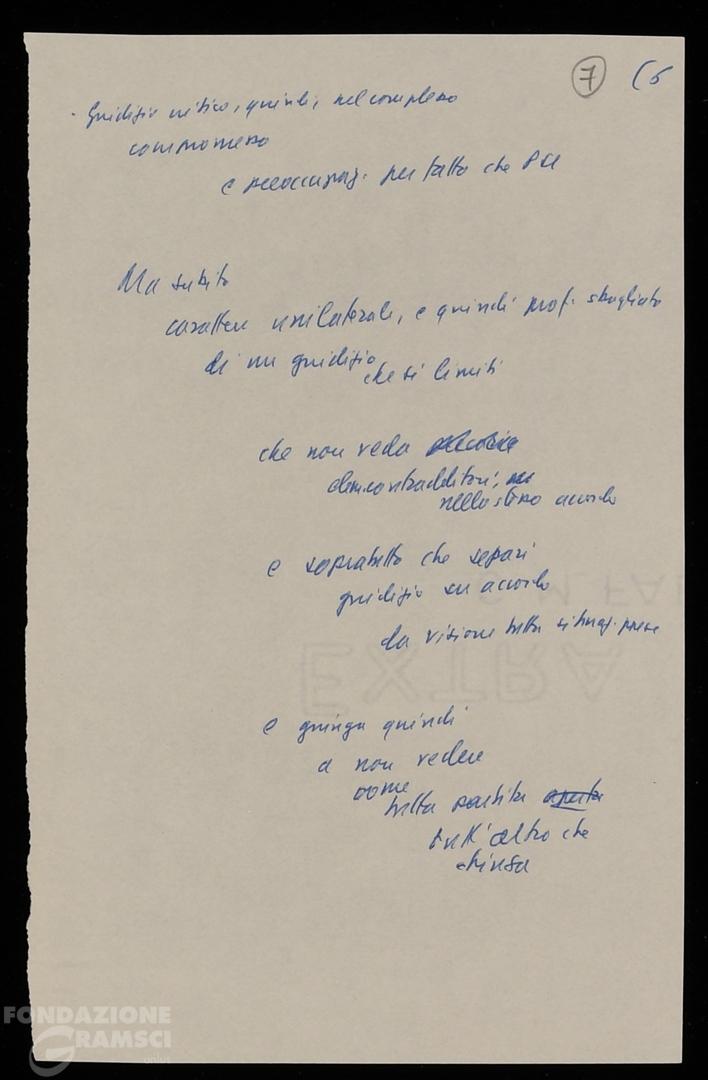 7 (6
- Giudizio critico, quindi, nel complesso
compromesso
e preoccupaz. per fatto che PSI
Ma subito
carattere unilaterale, e quindi prof. sbagliato
di un giudizio
che si limiti
che non veda
elem. contradditori,
nello stesso accordo
e soprattutto che separi
giudizio su accordo
da visione tutta situaz. paese
e giunga quindi
a non vedere
come
tutta partita aperta
tutt'altro che
chiusa
EXTRA
FONDAZIONE
GRAMSCI
onlus